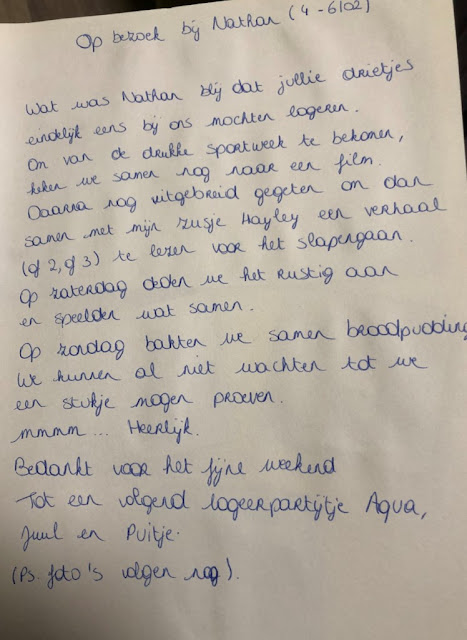 Op bezoek bij Nathan (4-6/02)
Wat was Nathan blij dat jullie drietjes
eindelijk eens bij ons mochten logeren.
Om van de drukke sportweek te bekomen,
keken we samen nog naar een film.
Daarna nog uitgebreid gegeten om dan
samen met mijn zusje Hayley een verhaal
(of 2, of 3) te lezen voor het slapengaan.
Op zaterdag deden we het rustig aan
en speelden wat samen.
Op zondag bakten we samen broodpudding
We kunnen al niet wachten tot we
een stukje mogen proeven.
mmmm... Heerlijk.
Bedankt voor het fijne weekend
Tot een volgend logeerpartijtje Aqua,
Juul en Puitje.
(Ps. foto's volgen nog).